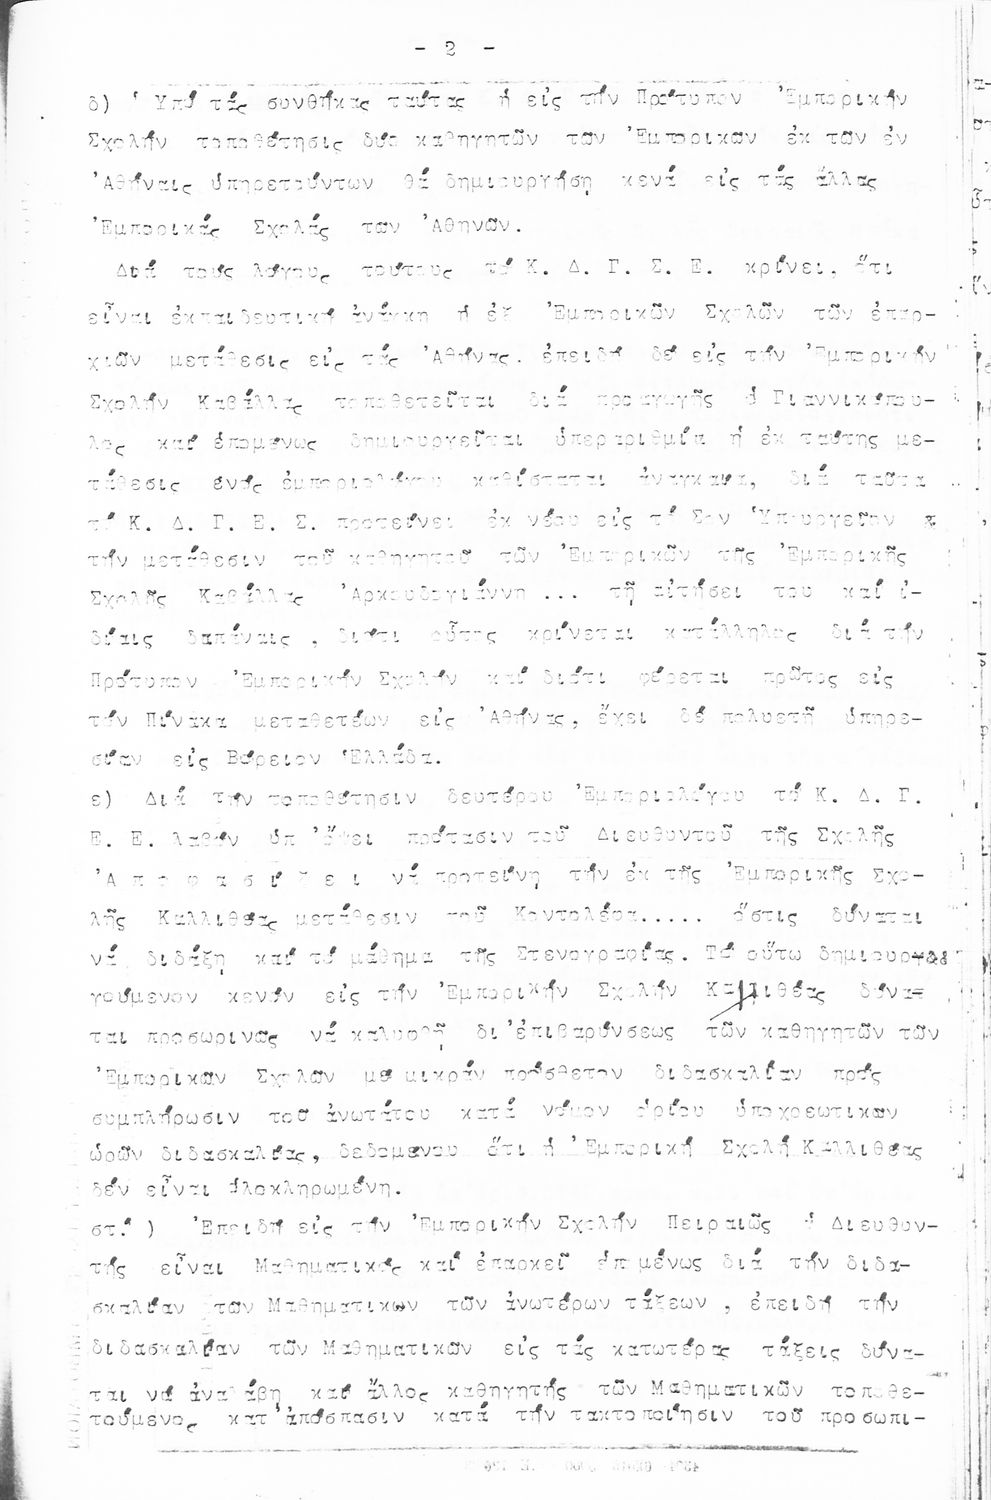 - 2 -
δ) Ὑπό τάς συνθήκας ταύτας ἡ εἰς τήν Πρότυπον Ἐμπορικήν
Σχολήν τοποθέτησις δύο καθηγητῶν των Ἐμπορικων ἐκ των ἐν
Ἀθήναις ὑπηρετούντων θά δημιουργήση κενά εἰς τάς ἄλλας
Ἐμπορικάς Σχολάς των Ἀθηνῶν.
Διά τους λόγους τούτους τό Κ. Δ. Γ. Σ. Ε. κρίνει, ὅτι
εἶναι ἐκπαιδευτική ἀνάγκη ἡ ἐξ Ἐμπορικῶν Σχολῶν τῶν ἐπαρ-
χιῶν μετάθεσις εἰς τάς Ἀθήνας. ἐπειδή δέ εἰς τήν Ἐμπορικήν
Σχολήν Καβάλλας τοποθετεῖται διά προαγωγῆς ὁ Γιαννικόπου-
λος καί ἑπομένως δημιουργεῖται ὑπεραριθμία ἡ ἐκ ταύτης με-
τάθεσις ἑνός ἐμποριολόγου καθίσταται ἀναγκαία, διά ταῦτα
τό Κ. Δ. Γ. Ε. Σ. προτείνει ἐκ νέου εἰς τό Σον Ὑπουργεῖον
τήν μετάθεσιν τοῦ καθηγητοῦ τῶν Ἐμπορικῶν τῆς Ἐμπορικῆς
Σχολῆς Καβάλλας Ἀρκουδογιάννη ... τῇ αἰτήσει του καί ἰ-
δίαις δαπάναις , διότι οὗτος κρίνεται κατάλληλος διά τήν
Πρότυπον Ἐμπορικήν Σχολήν καί διότι φέρεται πρῶτος εἰς
τόν Πίνακα μεταθετέων εἰς Ἀθήνας, ἔχει δέ πολυετῆ ὑπηρε-
σίαν εἰς Βόρειον Ἑλλάδα.
ε) Διά την τοποθέτησιν δευτέρου Ἐμποριολόγου τό Κ. Δ. Γ.
Ε. Σ. λαβόν ὑπ 'ὄψει πρότασιν τοῦ Διευθυντοῦ τῆς Σχολῆς
Ἀ π ο φ α σ ί ζ ε ι νά προτείνη τήν ἐκ τῆς Ἐμπορικῆς Σχο-
λῆς Καλλιθέας μετάθεσιν τοῦ Κοντολέφα..... ὅστις δύναται
νά διδάξη καί τό μάθημα τῆς Στενογραφίας. Τό οὕτω δημιουρ-
γούμενον κενόν εἰς τήν Ἐμπορικήν Σχολήν Καλλιθέας δύνα=
ται προσωρινως νά καλυφθῆ δι'ἐπιβαρύνσεως τῶν καθηγητῶν τῶν
Ἐμπορικῶν Σχολῶν με μικράν πρόσθετον διδασκαλίαν πρός
συμπλήρωσιν του ἀνωτάτου κατά νόμον ὁρίου ὑποχρεωτικων
ὡρῶν διδασκαλίας, δεδομένου ὅτι ἡ Ἐμπορική Σχολή Καλλιθέας
δέν εἶναι ὁλοκληρωμένη.
στ.) Ἐπειδή εἰς τήν Ἐμπορικήν Σχολήν Πειραιῶς ὁ Διευθυν-
τής εἶναι Μαθηματικός καί ἐπαρκεῖ ἑπομένως διά τήν διδα-
σκαλίαν των Μαθηματικων τῶν ἀνωτέρων τάξεων , ἐπειδή τήν
διδασκαλίαν τῶν Μαθηματικῶν εἰς τάς κατωτέρας τάξεις δύνα-
ται νά ἀναλάβη καί ἄλλος καθηγητής τῶν Μαθηματικῶν τοποθε-
τούμενος κατ'ἀπόσπασιν κατά τήν τακτοποίησιν τοῦ προσωπι-